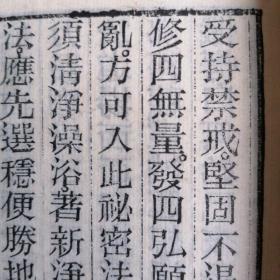 受持禁戒。堅固不退
修四無量。發四弘願
亂。方可入此祕密法
須清淨澡浴。著新淨
法。應先選穩便勝地